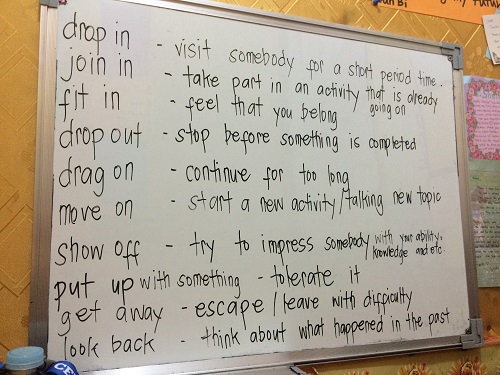 drop in - visit somebody for a short period time.
join in - take part in an activity that is already going on
fit in - feel that you belong
drop out - stop before something is completed
drag on - continue for too long
move on - start a new activity/talking new topic
show off - try to impress somebody/with your ability, knowledge and etc
put up with something - tolerate it
get away - escape/leave with difficulty
look back - think about what happened in the past